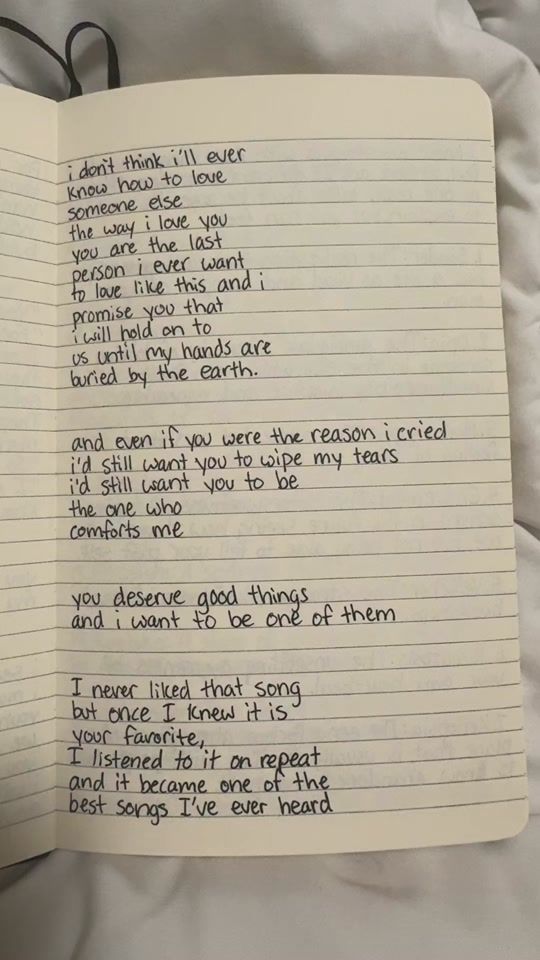 i don't think i'll ever
know how to love
someone else
the way i love you
you are the last
person i ever want
to love like this and i
promise you that
i will hold on to
us until my hands are
buried by the earth.
and even if you were the reason i cried
i'd still want you to wipe my tears
i'd still want you to be
the one who
comforts me
you deserve good things
and i want to be one of them
I never liked that song
but once I knew it is
your favorite,
I listened to it on repeat
and it became one of the
best songs I've ever heard